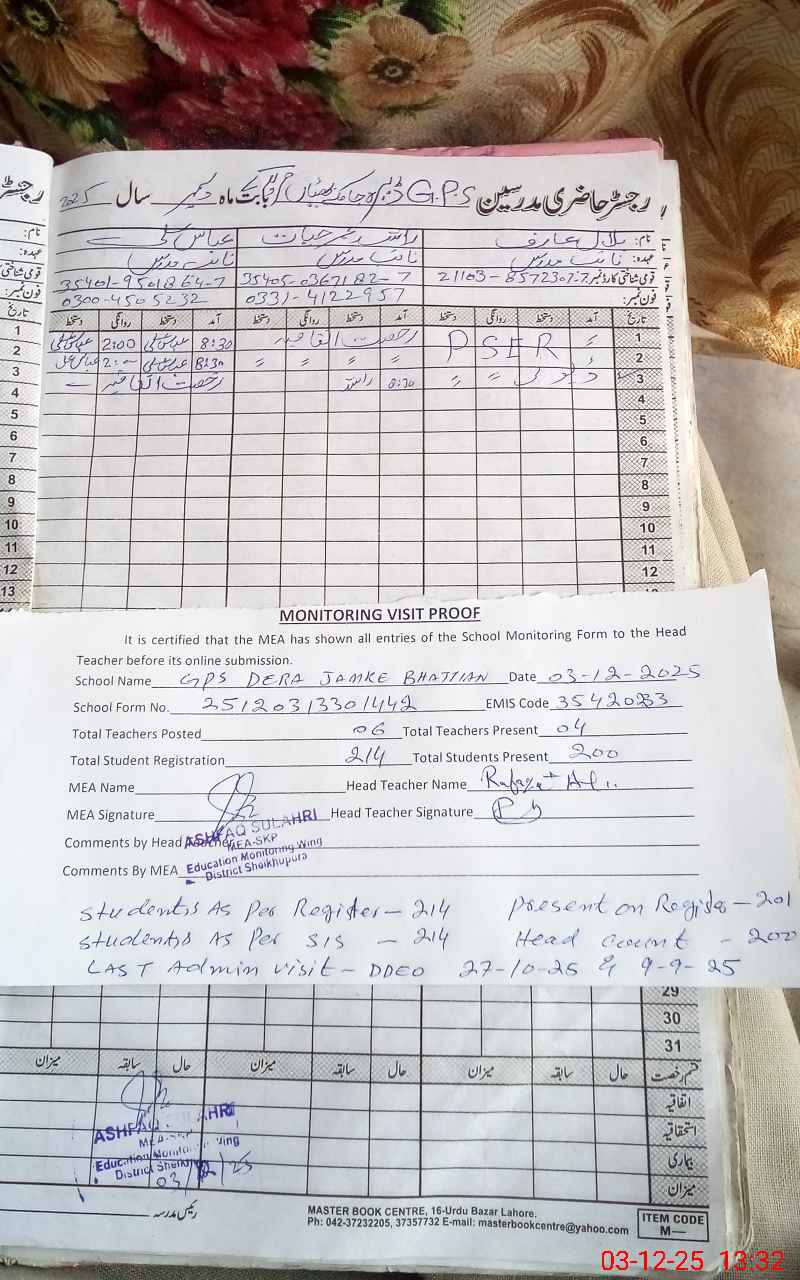 رجسٹر حاضری مدرسین G.P.S ڈیرہ جامکے بھٹیاں بابت ماہ دسمبر سال 2025
نام: بلال عارف راشد عمر حیات عباس علی
عہدہ: نائب مدرس نائب مدرس نائب مدرس
قومی شناختی کارڈ نمبر: 21103-8572307-7 35405-0367182-7 35401-9501864-7
فون نمبر: 0331-4122957 0300-4505232
تاریخ آمد دستخط روانگی دستخط آمد دستخط روانگی دستخط آمد دستخط روانگی دستخط
1 〃 PSER رخصت اتفاقیہ 8:30 عباس علی 2:00 عباس علی
2 〃 〃 〃 〃 〃 8:30 عباس علی 2:00 عباس علی
3 〃 〃 8:30 راشد رخصت اتفاقیہ
4
5
6
7
8
9
10
11
12
MONITORING VISIT PROOF
It is certified that the MEA has shown all entries of the School Monitoring Form to the Head
Teacher before its online submission.
School Name GPS DERA JAMKE BHATTIAN Date 03-12-2025
School Form No. 25120313301442 EMIS Code 35420233
Total Teachers Posted 06 Total Teachers Present 04
Total Student Registration 214 Total Students Present 200
MEA Name Head Teacher Name Rafaqat Ali
MEA Signature Head Teacher Signature
Comments by Head
Comments By MEA
ASHFAQ SULAHRI
MEA-SKP
Education Monitoring Wing
District Sheikhupura
students As Per Register - 214 present on Register - 201
students As Per SIS - 214 Head count - 200
LAST Admin visit - DDEO 27-10-25 & 9-9-25
29
30
31
قسم رخصت حال سابقہ میزان حال سابقہ میزان حال سابقہ میزان
اتفاقیہ
استحقاقیہ
بیماری
میزان
ASHFAQ SULAHRI
MEA-SKP
Education Monitoring Wing
District Sheikhupura
03/12/25
رئیس مدرسہ
MASTER BOOK CENTRE, 16-Urdu Bazar Lahore.
Ph: 042-37232205, 37357732 E-mail: masterbookcentre@yahoo.com
ITEM CODE
M—
03-12-25 13:32